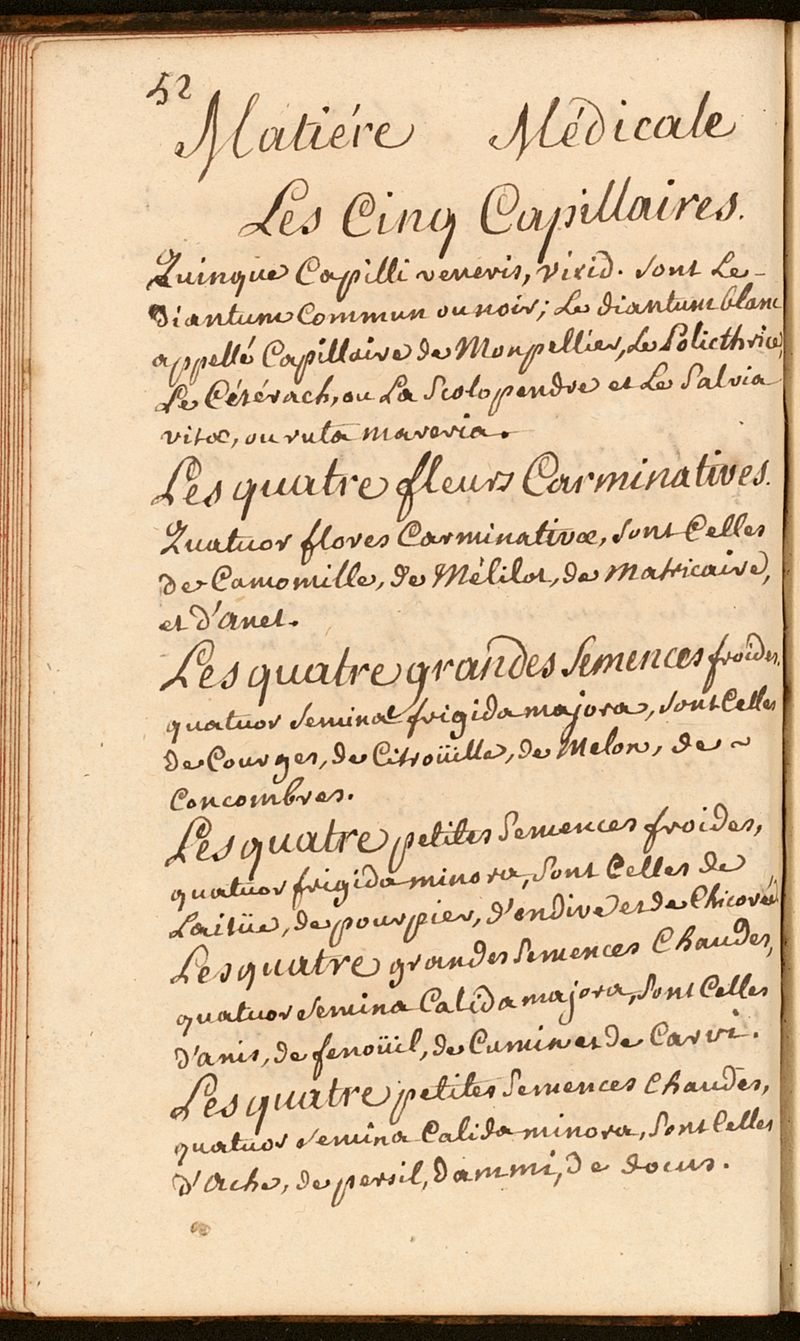 52
Matiére Médicale
Les Cinq Capillaires.
Quinque Capilli veneris, virid. sont Le-
diantum Commun ou noir; Le diantum blanc
appellé Capillaire de Monpellier, Le Policthrice,
Le Cétérach, ou La Scolopendre et Le Salvia
vitæ, ou ruta mareria.
Les quatre fleurs Carminatives.
Quatuor flores Carminativæ, sont Celles
de Camomille, de Mélilot, de Matricaire,
et d'anet.
Les quatre grandes Semences froides,
quatuor semina frigida majora, sont Celles
de Courges, de Citroüille, de Melon, de ~
Concombres.
Les quatre petites Semences froides,
quatuor frigida minora, sont Celles de
Laitüe, de pourpier, d'endive et de Chicorée
Les quatre grandes Semences Chaudes,
quatuor semina Calida majora, sont Celles
d'anis, de fenoüil, de Cumin et de Carvi.
Les quatre petites Semences Chaudes,
quatuor semina Calida minora, sont Celles
d'Ache, de persil, dammi, de docus.